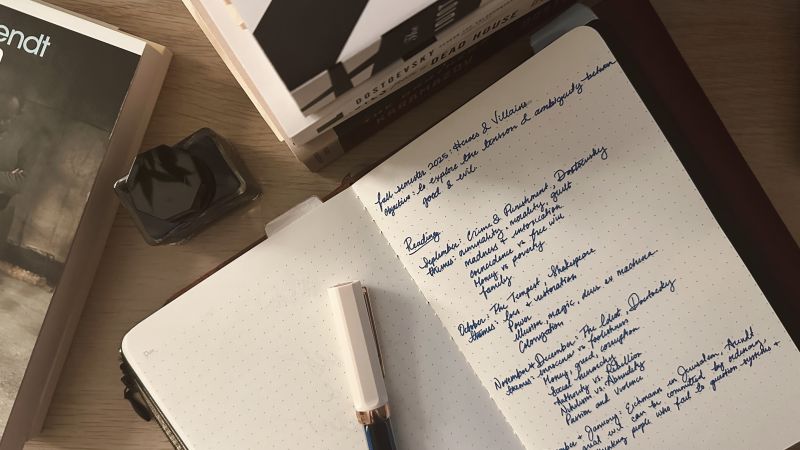 endt
The Idiot
DOSTOEVSKY
DEAD HOUSE
KARAMAZOV
Fall semester 2025: Heroes & Villains
objective: to explore the tension & ambiguity between
good & evil
Reading
September: Crime & Punishment, Dostoevsky
themes: criminality, morality, guilt
madness & intoxication
coincidence vs free will
Money vs poverty
family
October: The Tempest, Shakespeare
themes: loss & restoration
Power
illusion, magic, deus ex machina
Colonization
November + December: The Idiot, Dostoevsky
themes: innocence vs foolishness
Money, greed, corruption
Social hierarchy
Authority vs. Rebellion
Nihilism vs. Normality
Passion and Violence
+ January: Eichmann in Jerusalem, Arendt
evil can be committed by ordinary,
people who fail to question systems +